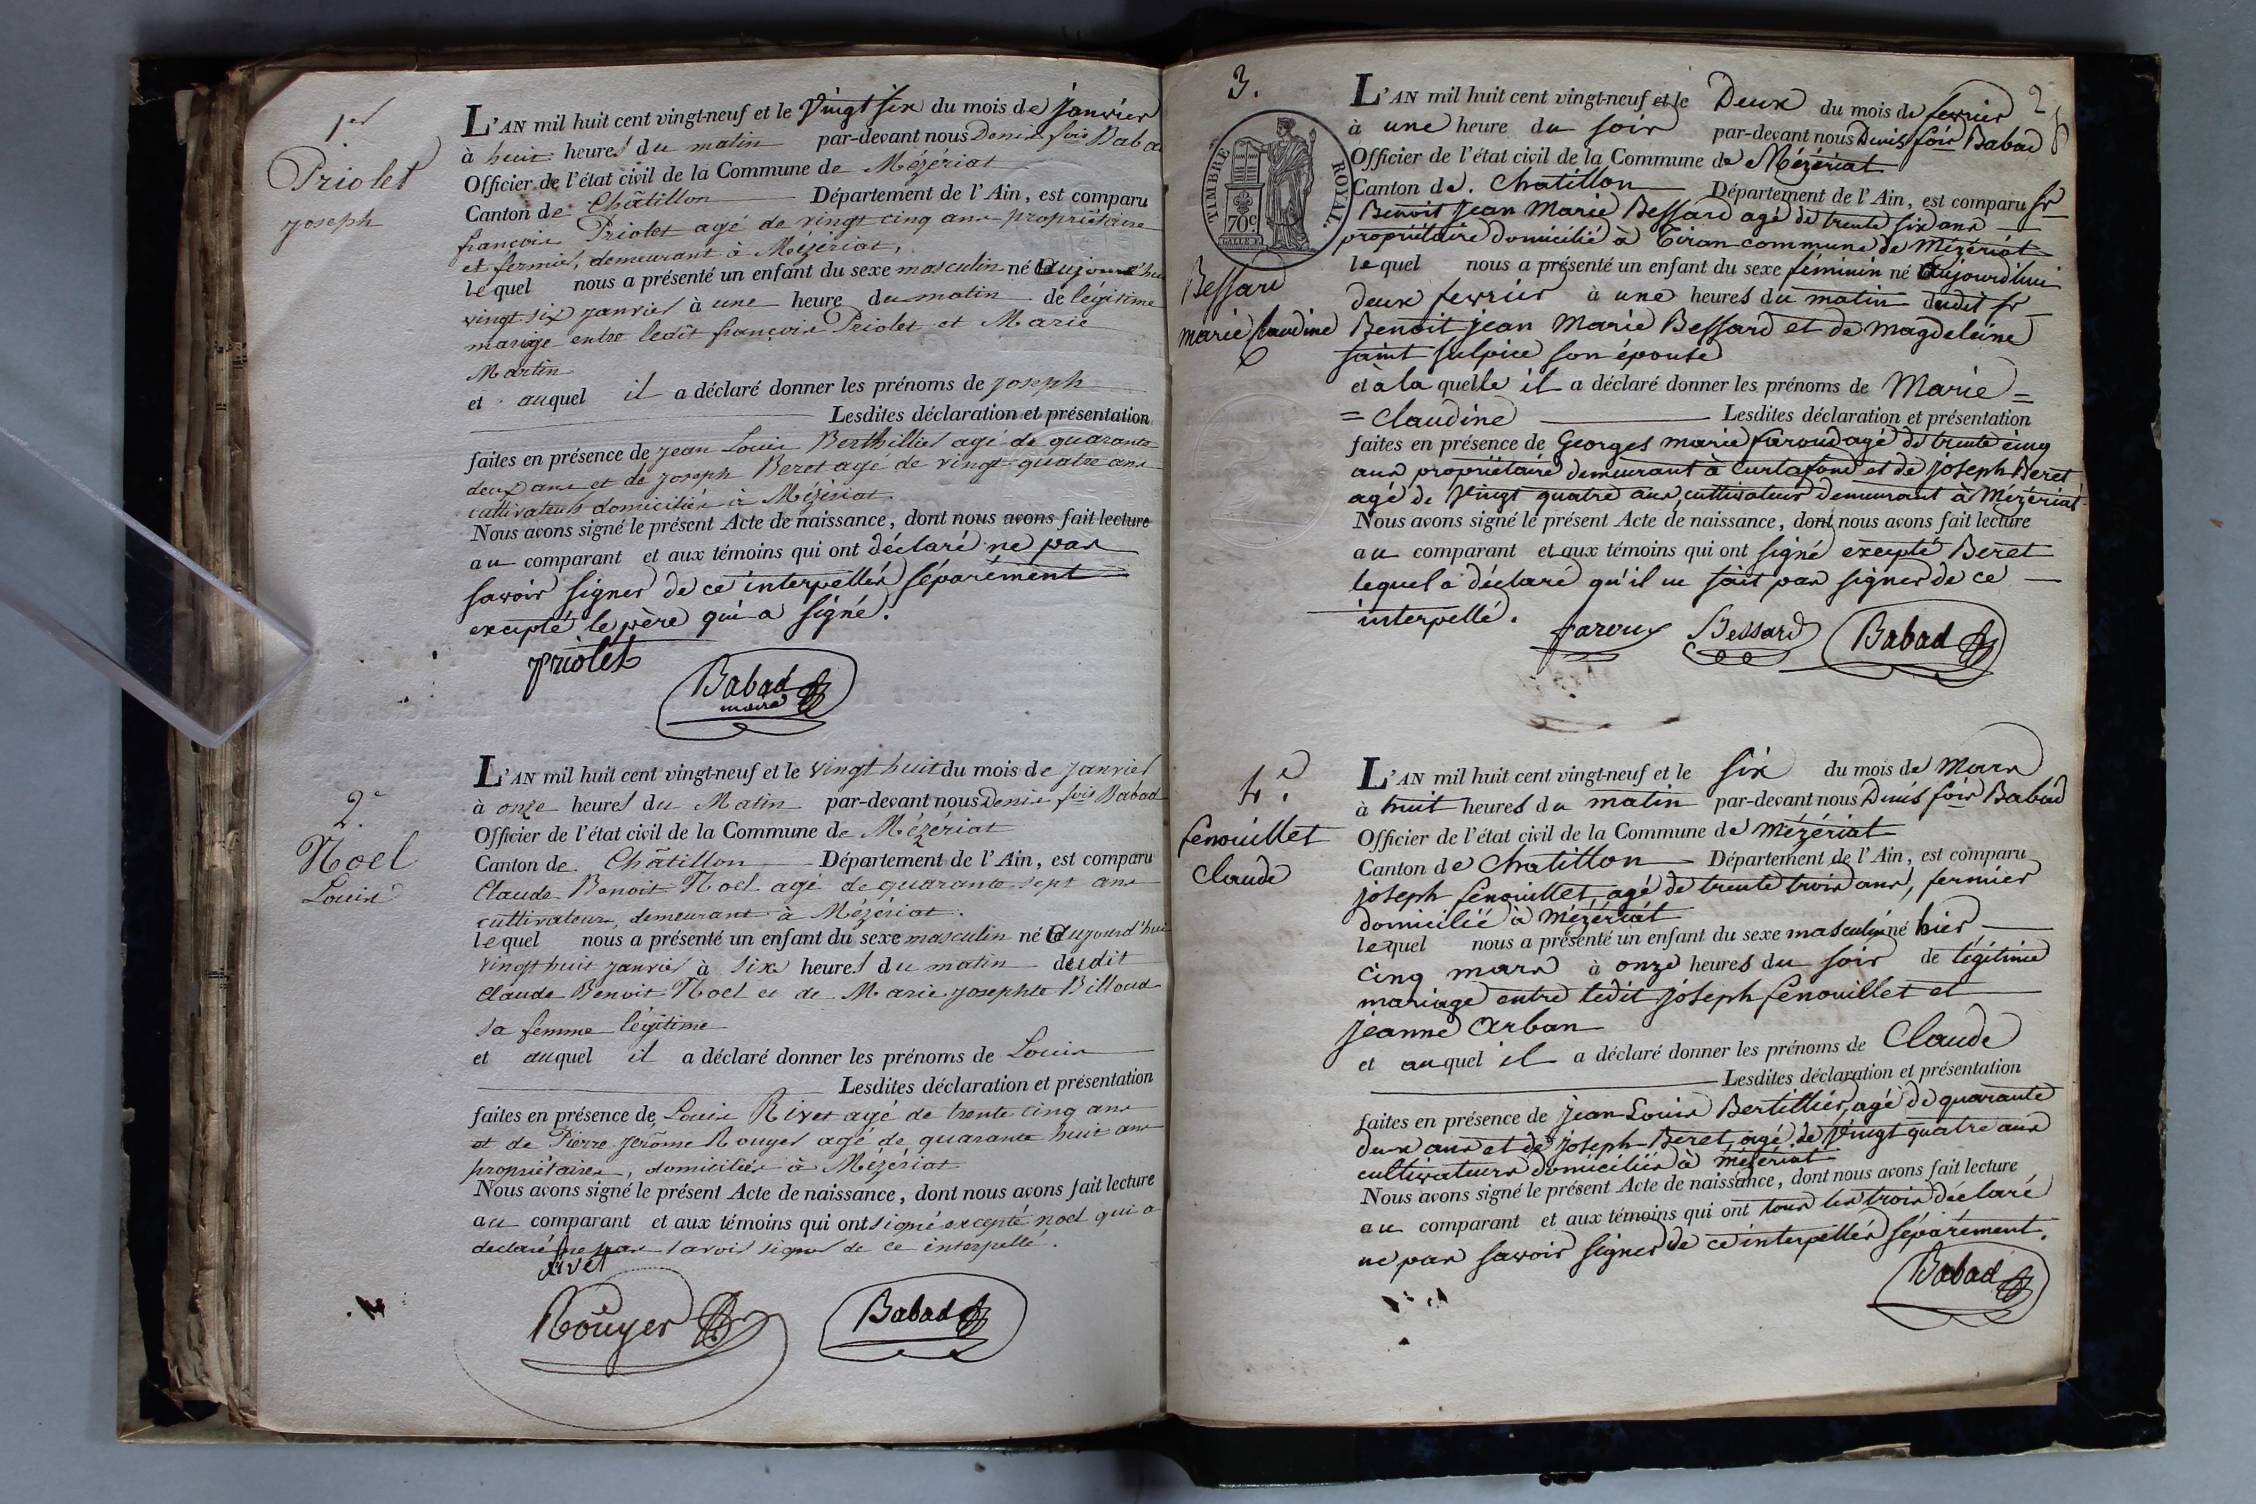 1er
Priolet
joseph
L'AN mil huit cent vingt-neuf et le Vingt six du mois de janvier
à huit heures du matin par-devant nous Denis fois Babad
Officier de l'état civil de la Commune de Mézériat
Canton de Châtillon Département de l'Ain, est comparu
françois Priolet agé de vingt cinq ans propriétaire
et fermier, demeurant à Mézériat,
lequel nous a présenté un enfant du sexe masculin né aujourd'hui
vingt six janvier à une heure du matin de légitime
mariage entre ledit françois Priolet et Marie
Martin
et auquel il a déclaré donner les prénoms de joseph
Lesdites déclaration et présentation
faites en présence de jean Louis Berthillier agé de quarante
deux ans et de joseph Beret agé de vingt quatre ans
cultivateurs domiciliés à Mézériat
Nous avons signé le présent Acte de naissance, dont nous avons fait lecture
au comparant et aux témoins qui ont déclaré ne pas
savoir signer de ce interpellés séparément
excepté le père qui a signé.
priolet
Babad
maire
2e
Noel
Louis
L'AN mil huit cent vingt-neuf et le vingt huit du mois de janvier
à onze heures du Matin par-devant nous Denis fois Babad
Officier de l'état civil de la Commune de Mézériat
Canton de Châtillon Département de l'Ain, est comparu
Claude Benoit Noel agé de quarante sept ans
cultivateur, demeurant à Mézériat.
lequel nous a présenté un enfant du sexe masculin né aujourd'hui
vingt huit janvier à six heures du matin dudit
Claude Benoit Noel et de Marie josephte Billoud
sa femme légitime
et auquel il a déclaré donner les prénoms de Louis
Lesdites déclaration et présentation
faites en présence de Louis Rivet agé de trente cinq ans
et de Pierre jerôme Rouyer agé de quarante huit ans
propriétaires, domiciliés à Mézériat
Nous avons signé le présent Acte de naissance, dont nous avons fait lecture
au comparant et aux témoins qui ont signé excepté noel qui a
declaré ne pas savoir signer de ce interpellé.
Rivet
Rouyer Babad
3.
2
TIMBRE ROYAL
70c
Bessard
marie claudine
L'AN mil huit cent vingt-neuf et le Deux du mois de fevrier
à une heure du soir par-devant nous Denis fois Babad
Officier de l'état civil de la Commune de Mézériat
Canton de Chatillon Département de l'Ain, est comparu sr
Benoit jean Marie Bessard agé de trente six ans
propriétaire domicilié à Tiran commune de Mézériat
lequel nous a présenté un enfant du sexe féminin né aujourd'hui
deux fevrier à une heures du matin dudit sr
Benoit jean Marie Bessard et de Magdeleine
saint sulpice son épouse
et à la quelle il a déclaré donner les prénoms de Marie =
= Claudine Lesdites déclaration et présentation
faites en présence de Georges marie faroud agé de trente cinq
ans propriétaire demeurant à Curtafond et de joseph Beret
agé de Vingt quatre ans cultivateur demeurant à Mézériat
Nous avons signé le présent Acte de naissance, dont nous avons fait lecture
au comparant et aux témoins qui ont signé excepté Beret
lequel a déclaré qu'il ne sait pas signer de ce
interpellé.
faroux Bessard Babad
4e.
fenouillet
Claude
L'AN mil huit cent vingt-neuf et le six du mois de Mars
à huit heures du matin par-devant nous Denis fois Babad
Officier de l'état civil de la Commune de Mézériat
Canton de Chatillon Département de l'Ain, est comparu
joseph fenouillet, agé de trente trois ans, fermier
domicilié à Mézériat
lequel nous a présenté un enfant du sexe masculin né hier,
cinq mars à onze heures du soir de légitime
mariage entre ledit joseph fenouillet et
jeanne Arban
et auquel il a déclaré donner les prénoms de Claude
Lesdites déclaration et présentation
faites en présence de jean Louis Bertillier, agé de quarante
deux ans et de joseph Beret, agé de Vingt quatre ans
cultivateurs domiciliés à Mézériat
Nous avons signé le présent Acte de naissance, dont nous avons fait lecture
au comparant et aux témoins qui ont tous les trois déclaré
ne pas savoir signer de ce interpellés séparément.
Babad